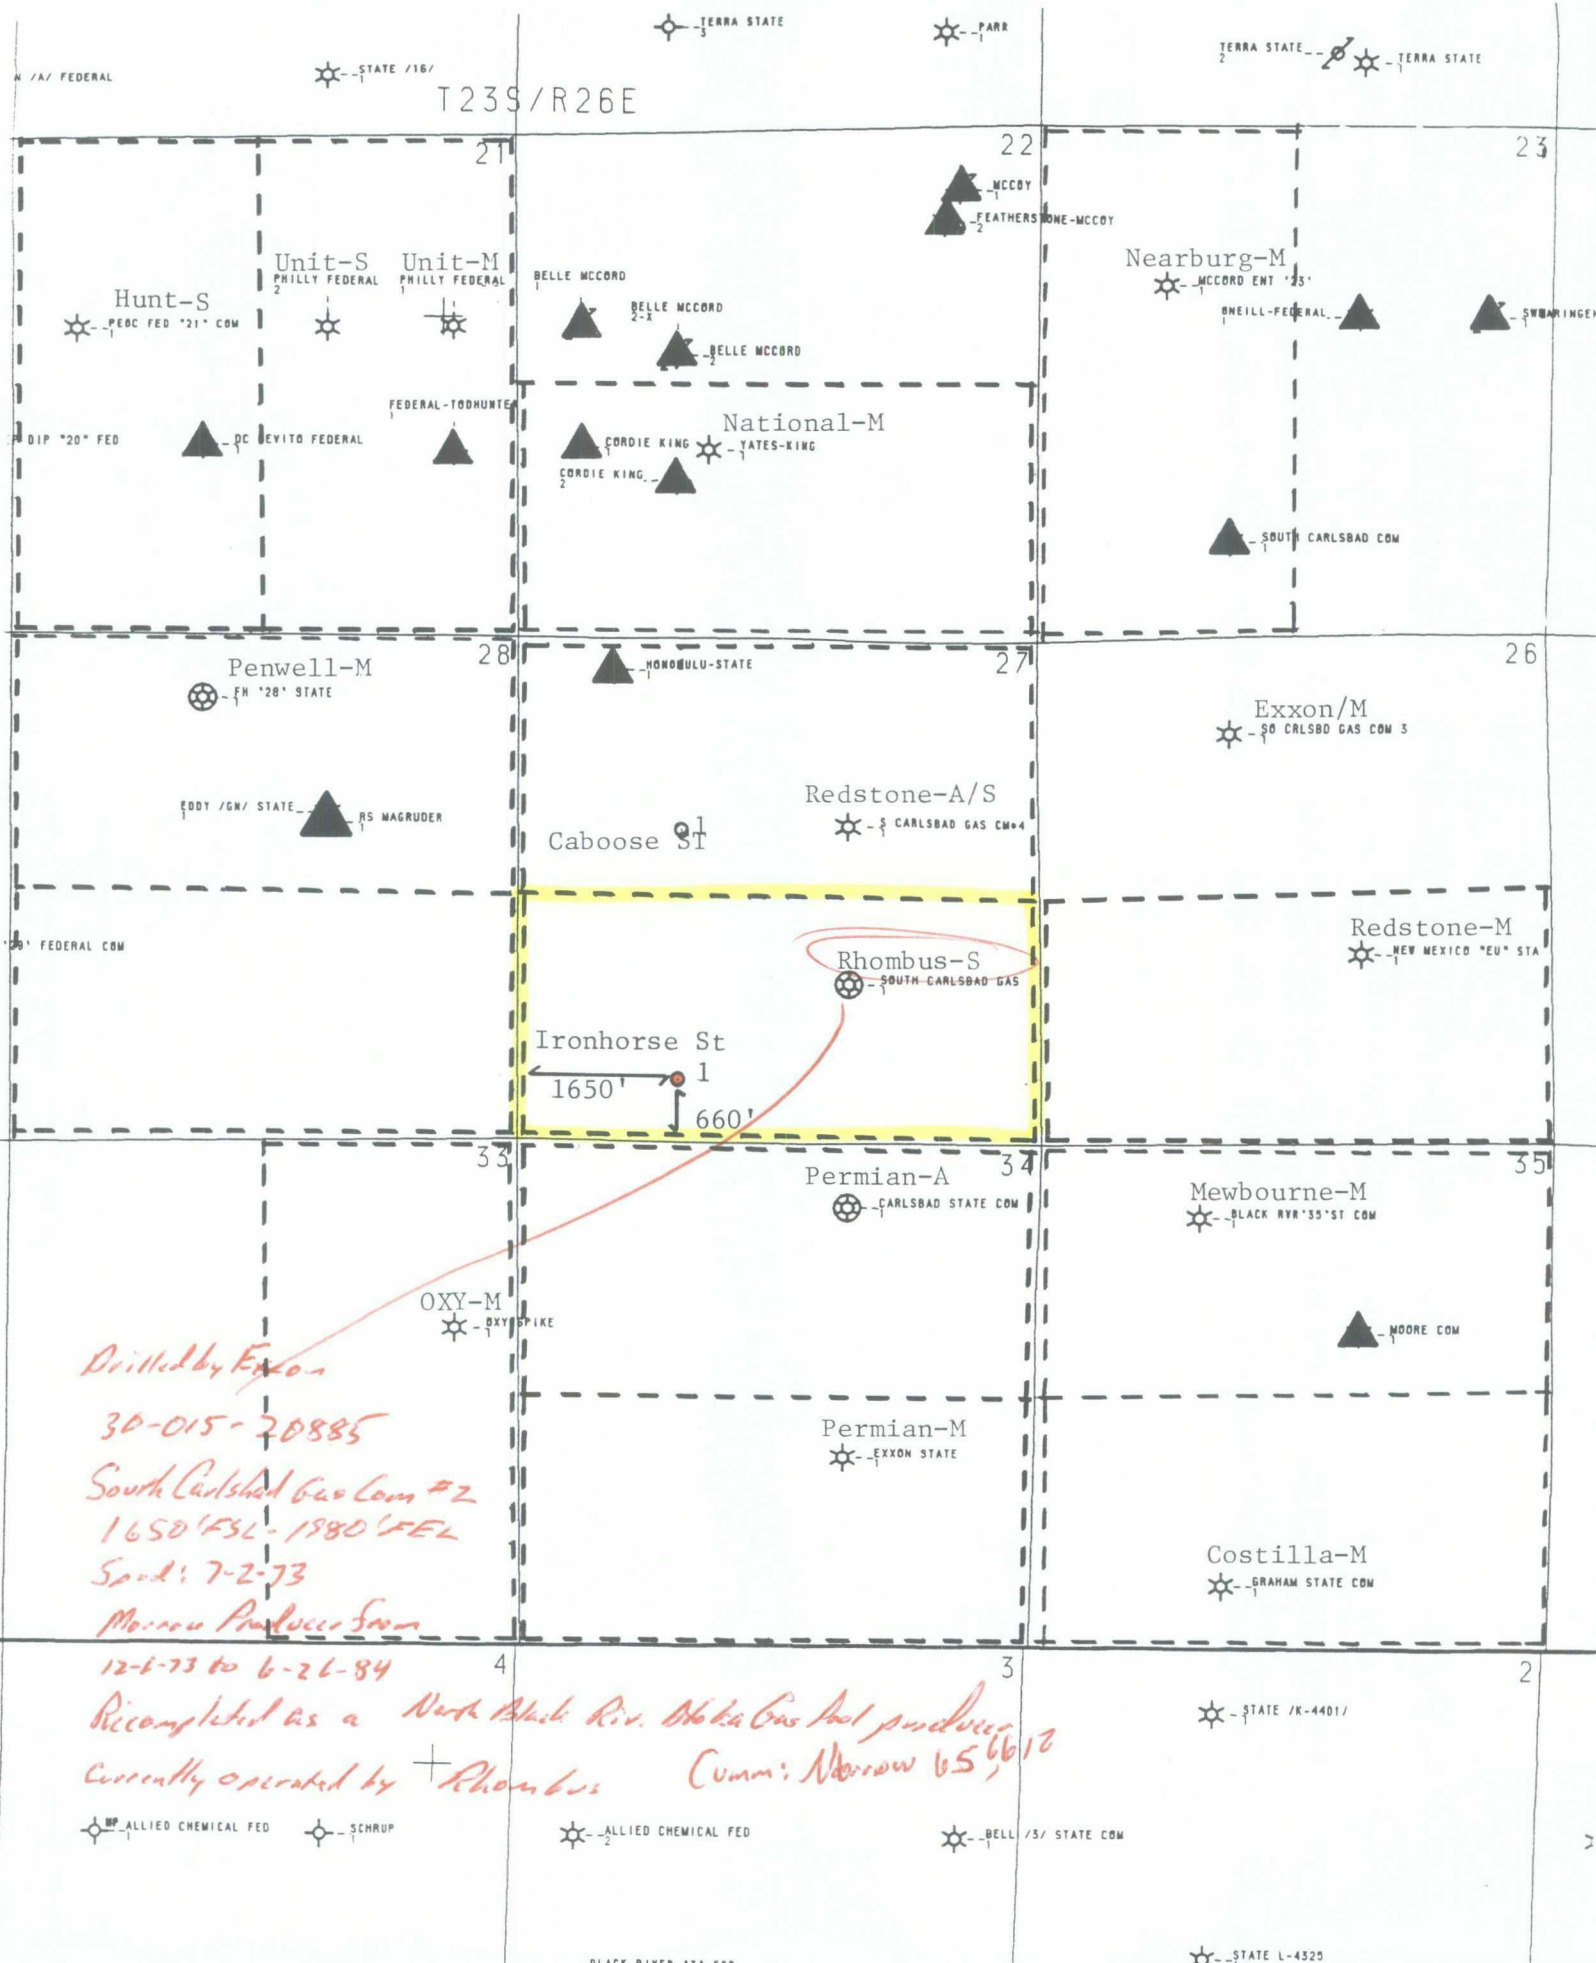 TERRA STATE
3
PARR
1
TERRA STATE
2
TERRA STATE
1
N /A/ FEDERAL
STATE /16/
1
T23S/R26E
21
22
23
MCCOY
1
FEATHERSTONE-MCCOY
2
Unit-S
PHILLY FEDERAL
2
Unit-M
PHILLY FEDERAL
1
BELLE MCCORD
1
Nearburg-M
MCCORD ENT '23'
1
Hunt-S
PEOC FED "21" COM
1
BELLE MCCORD
2-X
ONEILL-FEDERAL
1
SWEARINGEN
1
BELLE MCCORD
2
FEDERAL-TODHUNTER
1
National-M
DIP "20" FED
DC DEVITO FEDERAL
1
CORDIE KING
1
YATES-KING
1
CORDIE KING
2
SOUTH CARLSBAD COM
1
28
27
26
Penwell-M
FH "28" STATE
1
HONOLULU-STATE
1
Exxon/M
SO CRLSBD GAS COM 3
1
EDDY /GN/ STATE
1
RS MAGRUDER
1
Redstone-A/S
S CARLSBAD GAS CM#4
1
1
Caboose ST
FEDERAL COM
Redstone-M
NEW MEXICO "EU" STA
1
Rhombus-S
SOUTH CARLSBAD GAS
1
Ironhorse St
1
1650'
660'
33
34
35
Permian-A
CARLSBAD STATE COM
1
Mewbourne-M
BLACK RVR'35'ST COM
1
OXY-M
OXY SPIKE
1
MOORE COM
1
Drilled by Exxon
30-015-20885
South Carlsbad Gas Com #2
1650' FSL - 1980' FEL
Spud: 7-2-73
Morrow Producer from
12-6-73 to 6-26-84
Recompleted as a North Black Riv. Atoka Gas Pool producer
Currently operated by Rhombus
Cumm: Morrow
Permian-M
EXXON STATE
1
Costilla-M
GRAHAM STATE COM
1
4
3
2
STATE /K-4401/
1
ALLIED CHEMICAL FED
1
SCHRUP
1
ALLIED CHEMICAL FED
2
BELL /3/ STATE COM
1
STATE L-4325